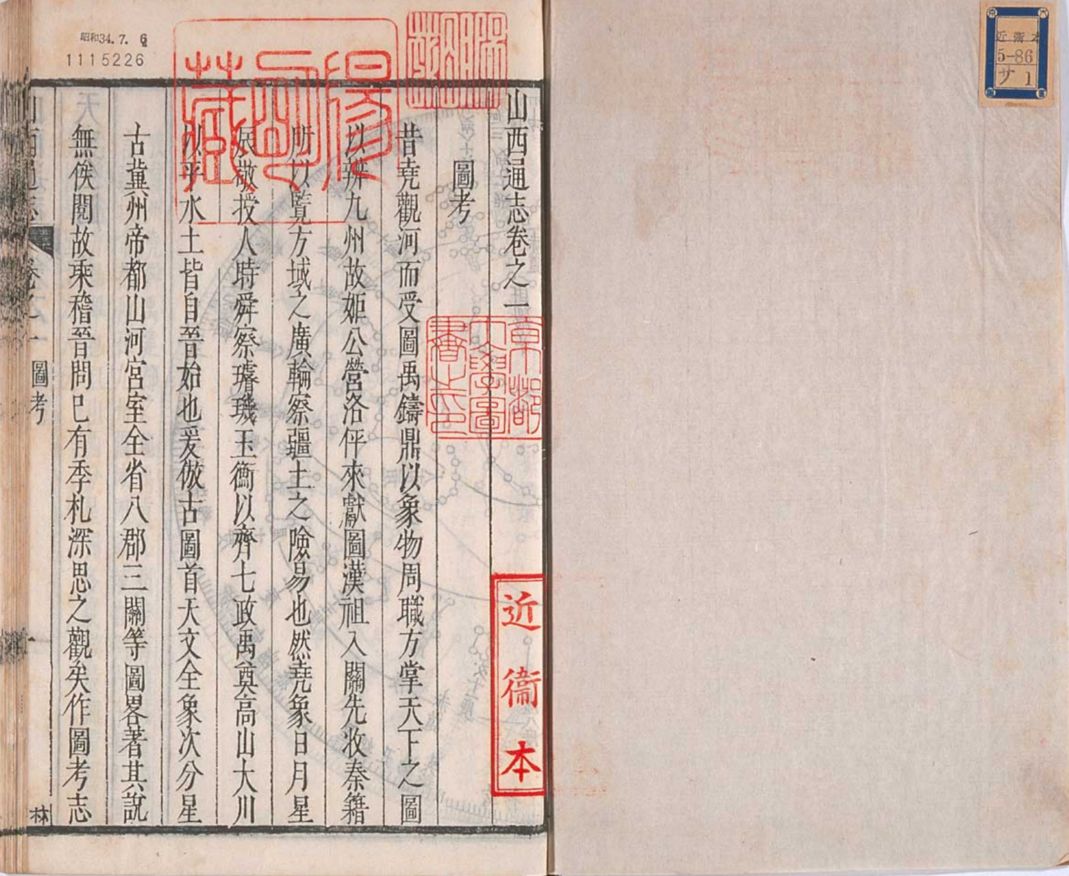 近衞本
5-86
サ 1
昭和34.7.6
1115226
山西通志卷之一
京都
大學圖
書之印
近衞本
圖考
昔堯觀河而受圖禹鑄鼎以象物周職方掌天下之圖
以辨九州故姬公營洛伻來獻圖漢祖入關先收秦籍
所以覽方域之廣輪察疆土之險易也然堯象日月星
辰敬授人時舜察璿璣玉衡以齊七政禹奠高山大川
以平水土皆自晉始也爰倣古圖首天文全象次分星
古冀州帝都山河宮室全省八郡三關等圖畧著其說
無俟閱故乘稽晉問已有季札深思之觀矣作圖考志
山西通志 卷之一 圖考 一 林